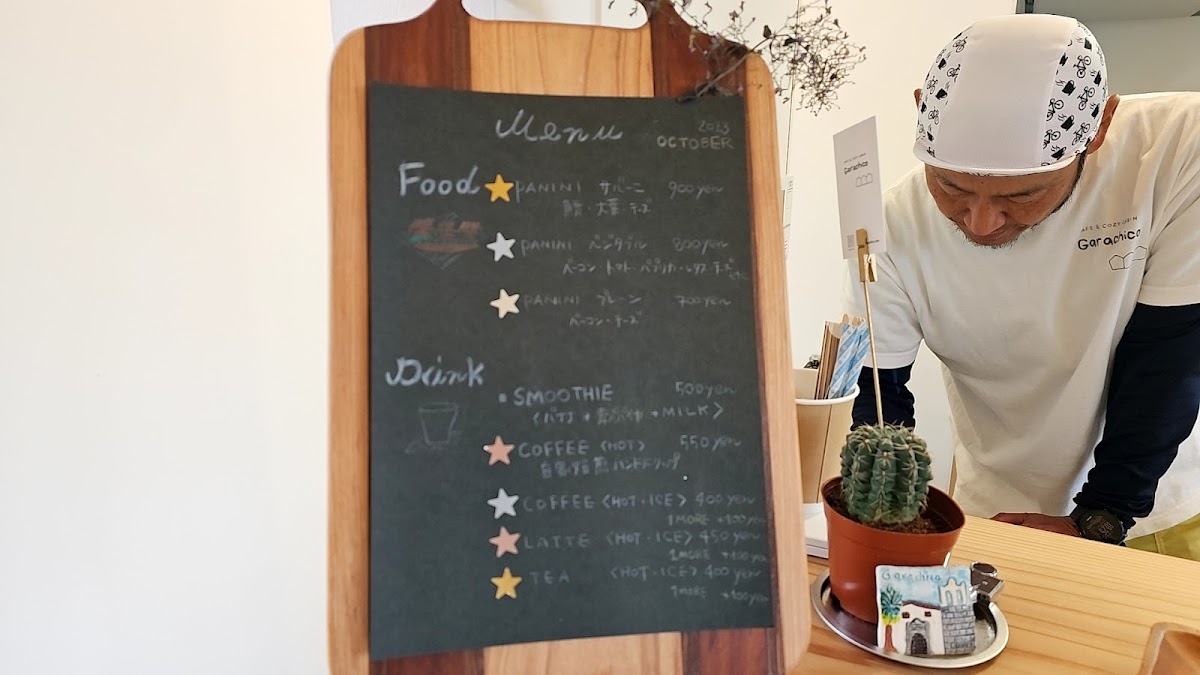 Menu
2023
OCTOBER
Food
PANINI サバーニ 900yen
大葉・チーズ
PANINI ベジタブル 800yen
ベーコン トマト・パプリカ・レタス・チーズ
PANINI プレーン 700yen
ベーコン・チーズ
Drink
SMOOTHIE 500yen
+ MILK>
COFFEE <HOT> 550yen
自家焙煎ハンドドリップ
COFFEE <HOT・ICE> 400yen
1MORE +100yen
LATTE <HOT・ICE> 450yen
1MORE +100yen
TEA <HOT・ICE> 400yen
1MORE +100yen
Garachico
Garachico
Garachico